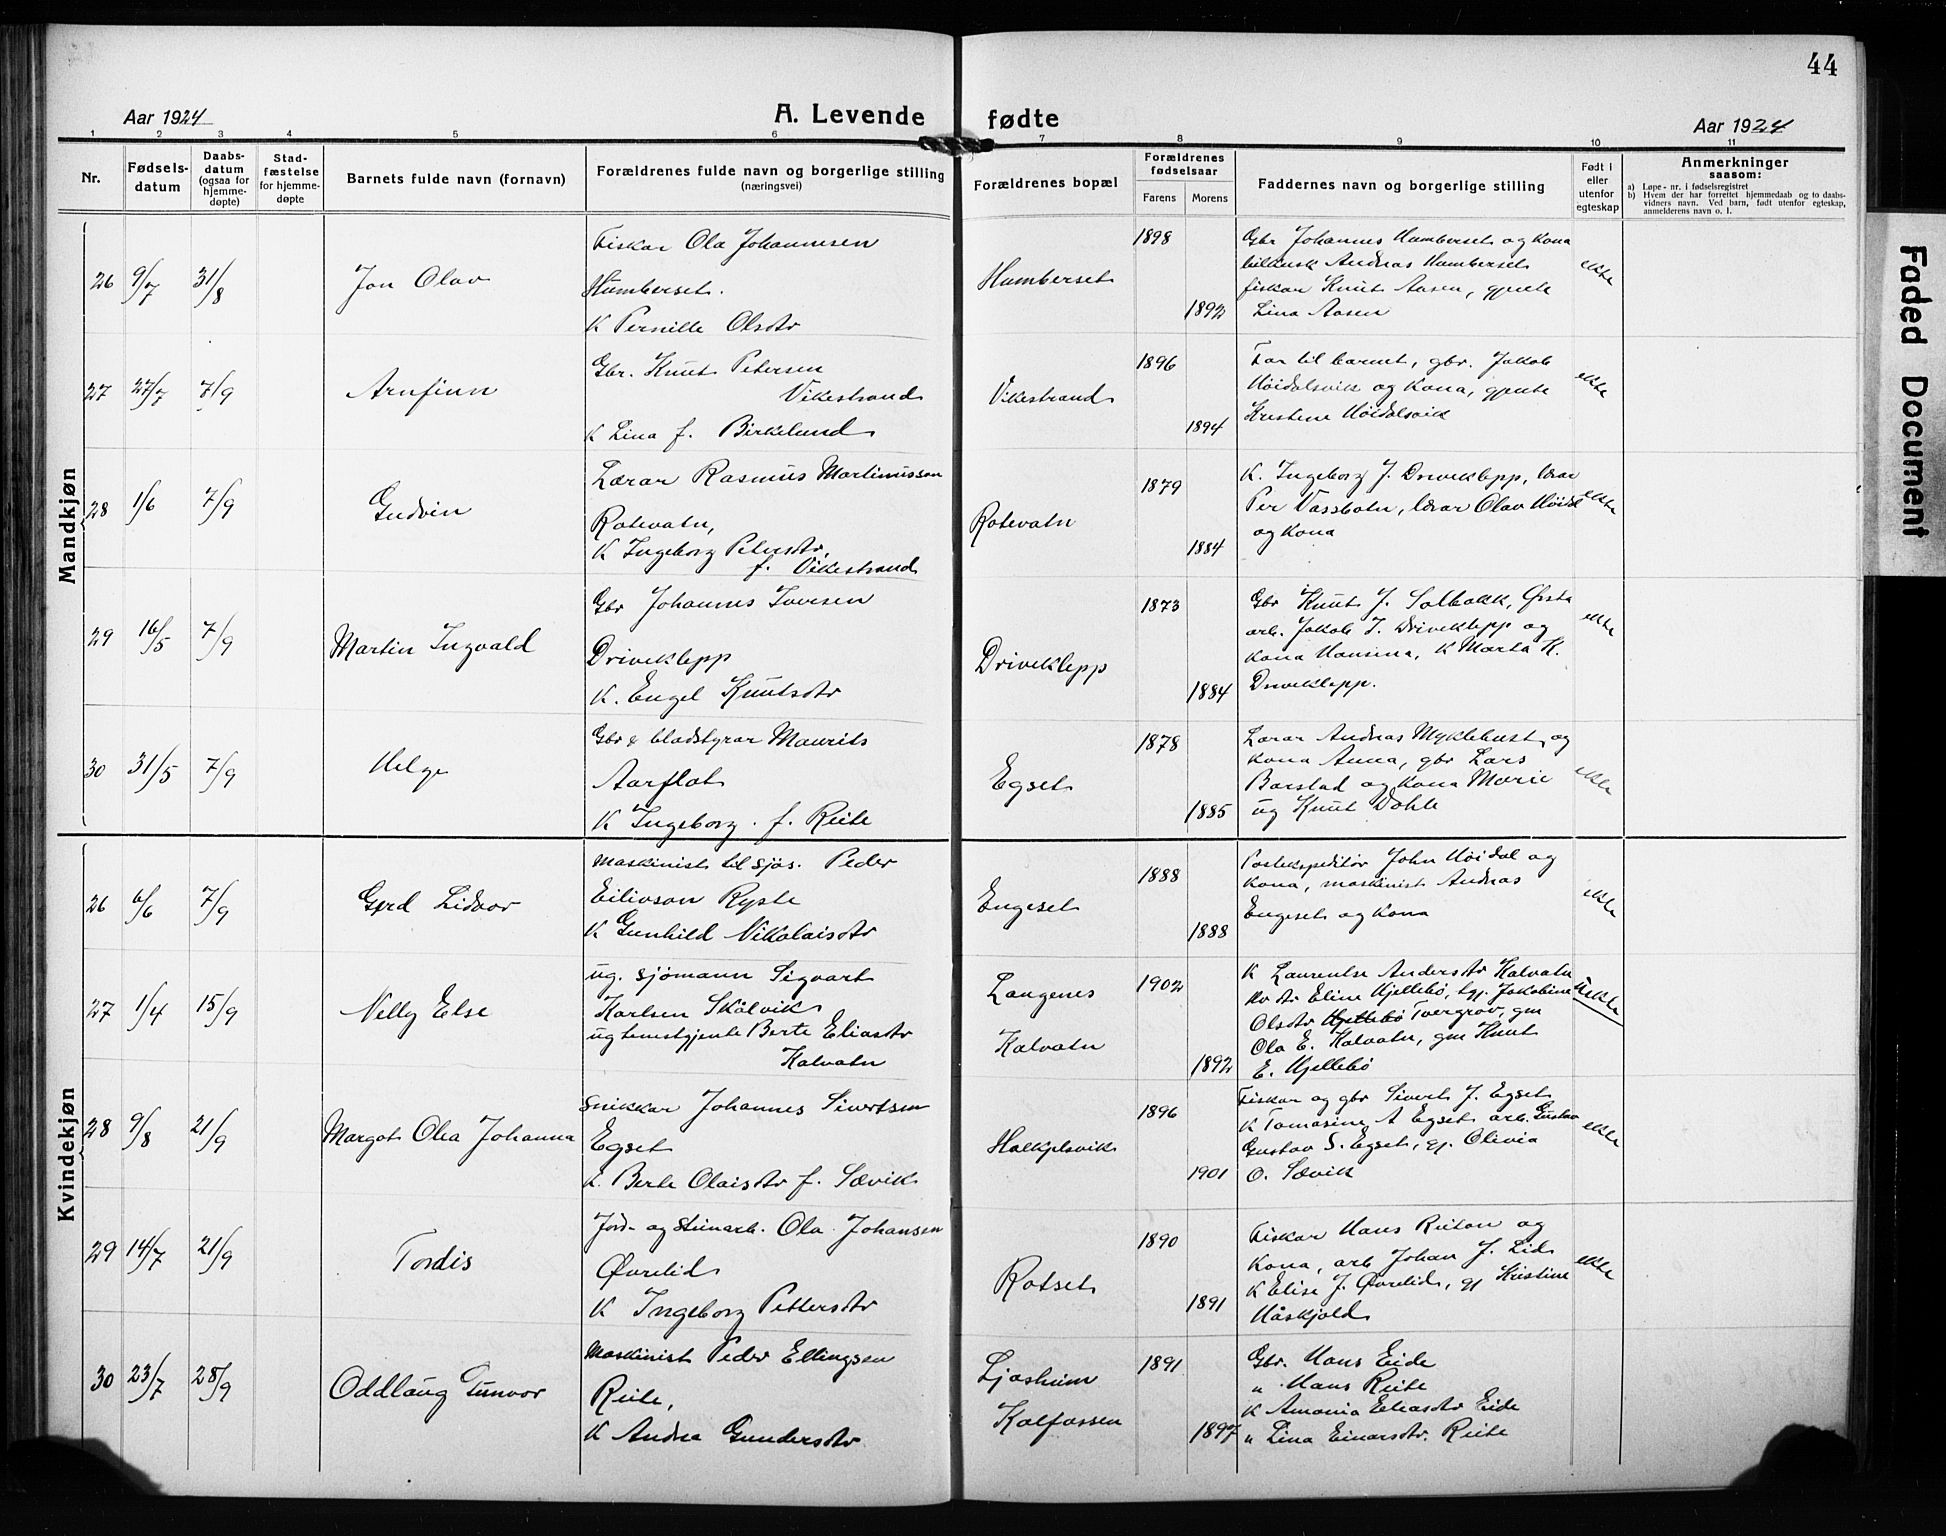 44
Aar 1924
A. Levende fødte
Aar 1924
1 2 3 4 5 6 7 8 9 10 11
Nr.
Fødsels-
datum
Daabs-
datum
(ogsaa for
hjemme-
døpte)
Stad-
fæstelse
for hjemme-
døpte
Barnets fulde navn (fornavn)
Forældrenes fulde navn og borgerlige stilling
(næringsvei)
Forældrenes bopæl
Forældrenes
fødselsaar
Farens
Morens
Faddernes navn og borgerlige stilling
Født i
eller
utenfor
egteskap
Anmerkninger
saasom:
a) Løpe-nr. i fødselsregistret
b) Hvem der har forrettet hjemmedaab og to daabs-
vidners navn. Ved barn, født utenfor egteskap,
anmelderens navn o. l.
Faded Document
Mandkjøn
26 9/7 31/8
Jon Olav
Fiskar Ola Johannesen
Humberset.
K Pernille Olsdtr
Humberset
1898
1892
Gbr Johannes Humberset og kona
Andreas Humberset
fiskar Knut Aasen, gjente
Lina Aasen
ekte
27 27/7 7/9
Arnfinn
Gbr. Knut Petersen
Vikestrand
K Lina f. Birkelund
Vikestrand
1896
1894
Far til barnet, gbr. Jakob
Høidalsvik og kona, gjente
Kristine Høidalsvik
ekte
28 1/6 7/9
Gudvin
Lærar Rasmus Martinusson
Rotevatn,
K Ingeborg Petersdtr,
f. Vikestrand
Rotevatn
1879
1884
K. Ingeborg J. Driveklepp, lærar
Per Vassbotn, lærar Olav Høidal
og kona
ekte
29 16/5 7/9
Martin Ingvald
Gbr Johannes Iversen
Driveklepp
K. Engel Knutsdtr
Driveklepp
1873
1884
Gbr Knut J. Solbakk, Ørsta
arb. Jakob I. Driveklepp og
kona Hansina, K Marta K.
Driveklepp.
ekte
30 31/5 7/9
Helge
Gbr & bladstyrar Maurits
Aarflot
K Ingeborg f. Reite
Egset
1878
1885
Lærar Andreas Myklebust og
kona Anna, gbr Lars
Barstad og kona Marie
ug Knut Dahle
ekte
Kvindekjøn
26 6/6 7/9
Gerd Lidvor
Maskinist til sjøs. Peder
Eilivson Ryste
K Gunhild Nikolaisdtr
Engeset
1888
1888
Postekspeditør John Høidal og
kona, maskinist Andreas
Engeset og kona
ekte
27 1/4 15/9
Nelly Else
ug. sjømann Sigvart
Karlsen Skålvik
ug tenestgjente Berte Eliasdtr
Kalvatn
Langenes
Kalvatn
1902
1892
K Laurentse Andersdtr Kalvatn
Eline Hjellebø, Jakobine
Olsdtr Hjellebø Tvergrov, gm
Ola E. Kalvatn, gm Knut
E. Hjellebø
Uekte
28 9/8 21/9
Margot Olea Johanna
Snikkar Johannes Sivertsen
Egset
K. Berte Olaisdtr f. Sævik
Halkjelsvik
1896
1901
Fiskar og gbr Sivert J. Egset
K Tomasine A Egset arb. Gustav
Gustav S. Egset, gj. Olivia
O. Sævik
ekte
29 14/7 21/9
Tordis
Jord- og steinarb. Ola Johansen
Øvrelid
K Ingeborg Pettersdtr
Rotset
1890
1891
Fiskar Hans Reiton og
kona, arb Johan J. Lid
K Elise J. Øvrelid, gj Kristine
Håskjold
ekte
30 23/7 28/9
Oddlaug Gunvor
Maskinist Peder Ellingsen
Reite,
K Andrea Gundersdtr
Ljosheim
Kalfossen
1891
1897
Gbr. Hans Eide
" Hans Reite
K Amania Eliasdtr Eide
" Lina Einarsdtr. Reite